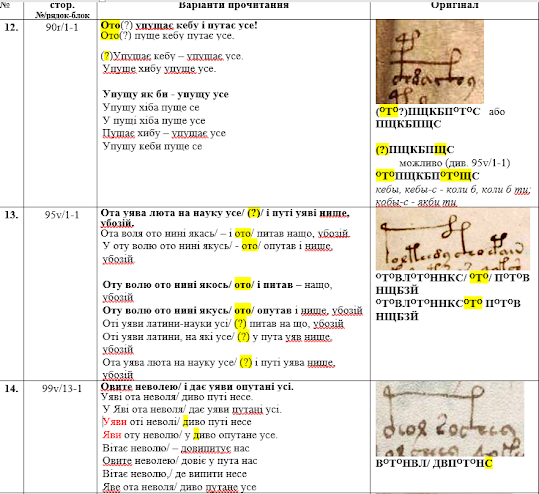 №
стор.
№/рядок-блок
Варіанти прочитання
Оригінал
12.
90r/1-1
Ото(?) упущає кебу і путає усе!
Ото(?) пуще кебу путає усе.
(?)Упущає кебу – упущає усе.
Упуще хибу упуще усе.
Упущу як би - упущу усе
Упушу хіба пуще се
У пущі хіба пуще усе
Пущає хибу – упущає усе
Упушу кеби пуще се
(ОТО?)ПЩКБПОТОС або
ПЩКБПЩС
(?)ПЩКБПЩС
можливо (див. 95v/1-1)
ОТОПЩКБПОТОЩС
кебы, кебы-с - коли б, коли б ти;
кобы-с - якби ти
13.
95v/1-1
Ота уява люта на науку усе/ (?)/ і путі уяві нище,
убозій.
Ота воля ото нині якась/ – і ото/ питав нащо, убозій
У оту волю ото нині якусь/ - ото/ опутав і нище,
убозій
Оту волю ото нині якось/ ото/ і питав – нащо,
убозій
Оту волю ото нині якось/ ото/ опутав і нище, убозій
Оті уяви латини-науки усі/ (?) питав на що, убозій
Оті уяви латини, на які усе/ (?) у пута уяв нище,
убозій
Ота уява люта на науку усе/ (?) і путі уява нище,
убозій
ОТОВЛОТОННКС/ ОТО/ ПОТОВ
НЩБЗЙ
ОТОВЛОТОННКСОТО ПОТОВ
НЩБЗЙ
14.
99v/13-1
Овите неволею/ і дає уяви опутані усі.
Уяві ота неволя/ диво путі несе.
У Яві ота неволя/ дає уяви путані усі.
Уяви оті неволі/ диво путі несе
Яви оту неволю/ у диво опутане усе.
Вітає неволю/ – довипитує нас
Овите неволею/ довіє у пута нас
Вітає неволю,/ де випити несе
Яве ота неволя/ диво путане усе
ВОТОНВЛ/ ДВПОТОНС